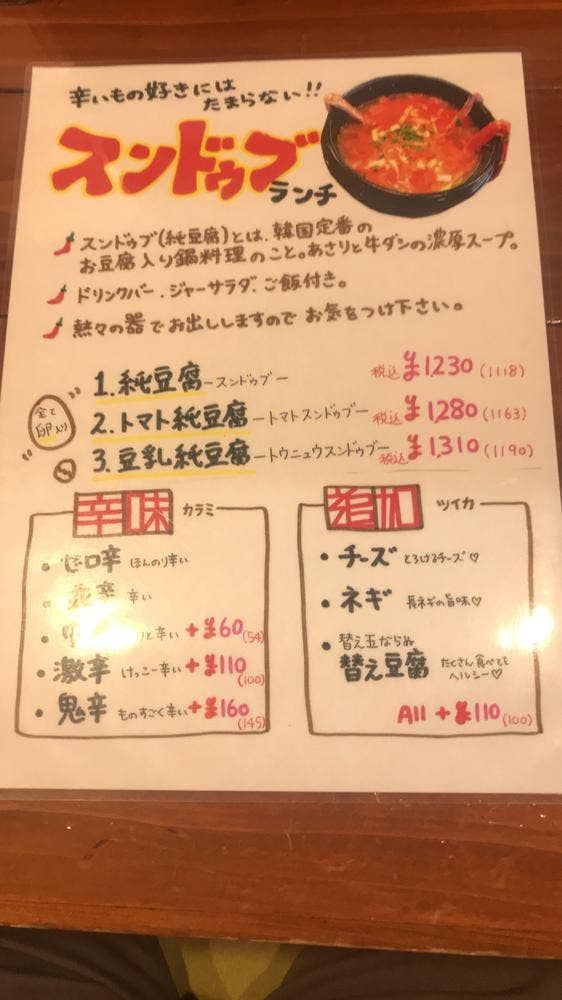 辛いもの好きには
たまらない!!
スンドゥブ
ランチ
スンドゥブ(純豆腐)とは、韓国定番の
お豆腐入り鍋料理のこと。あさりと牛ダシの濃厚スープ。
ドリンクバー、ジャーサラダ、ご飯付き。
熱々の器でお出ししますのでお気をつけ下さい。
全て
卵入り
1.純豆腐ースンドゥブー 税込¥1,230(1118)
2.トマト純豆腐ートマトスンドゥブー 税込¥1,280(1163)
3.豆乳純豆腐ートウニュウスンドゥブー 税込¥1,310(1190)
辛味 カラミ
・ 口辛 ほんのり辛い
・ 辛 辛い
・ と辛い +¥60(54)
・激辛 けっこー辛い +¥110(100)
・鬼辛 ものすごく辛い +¥160(145)
追加 ツイカ
・チーズ とろけるチーズ♡
・ネギ 長ネギの旨味♡
・替え玉ならぬ
替え豆腐 たくさん食べても
ヘルシー♡
All +¥110(100)